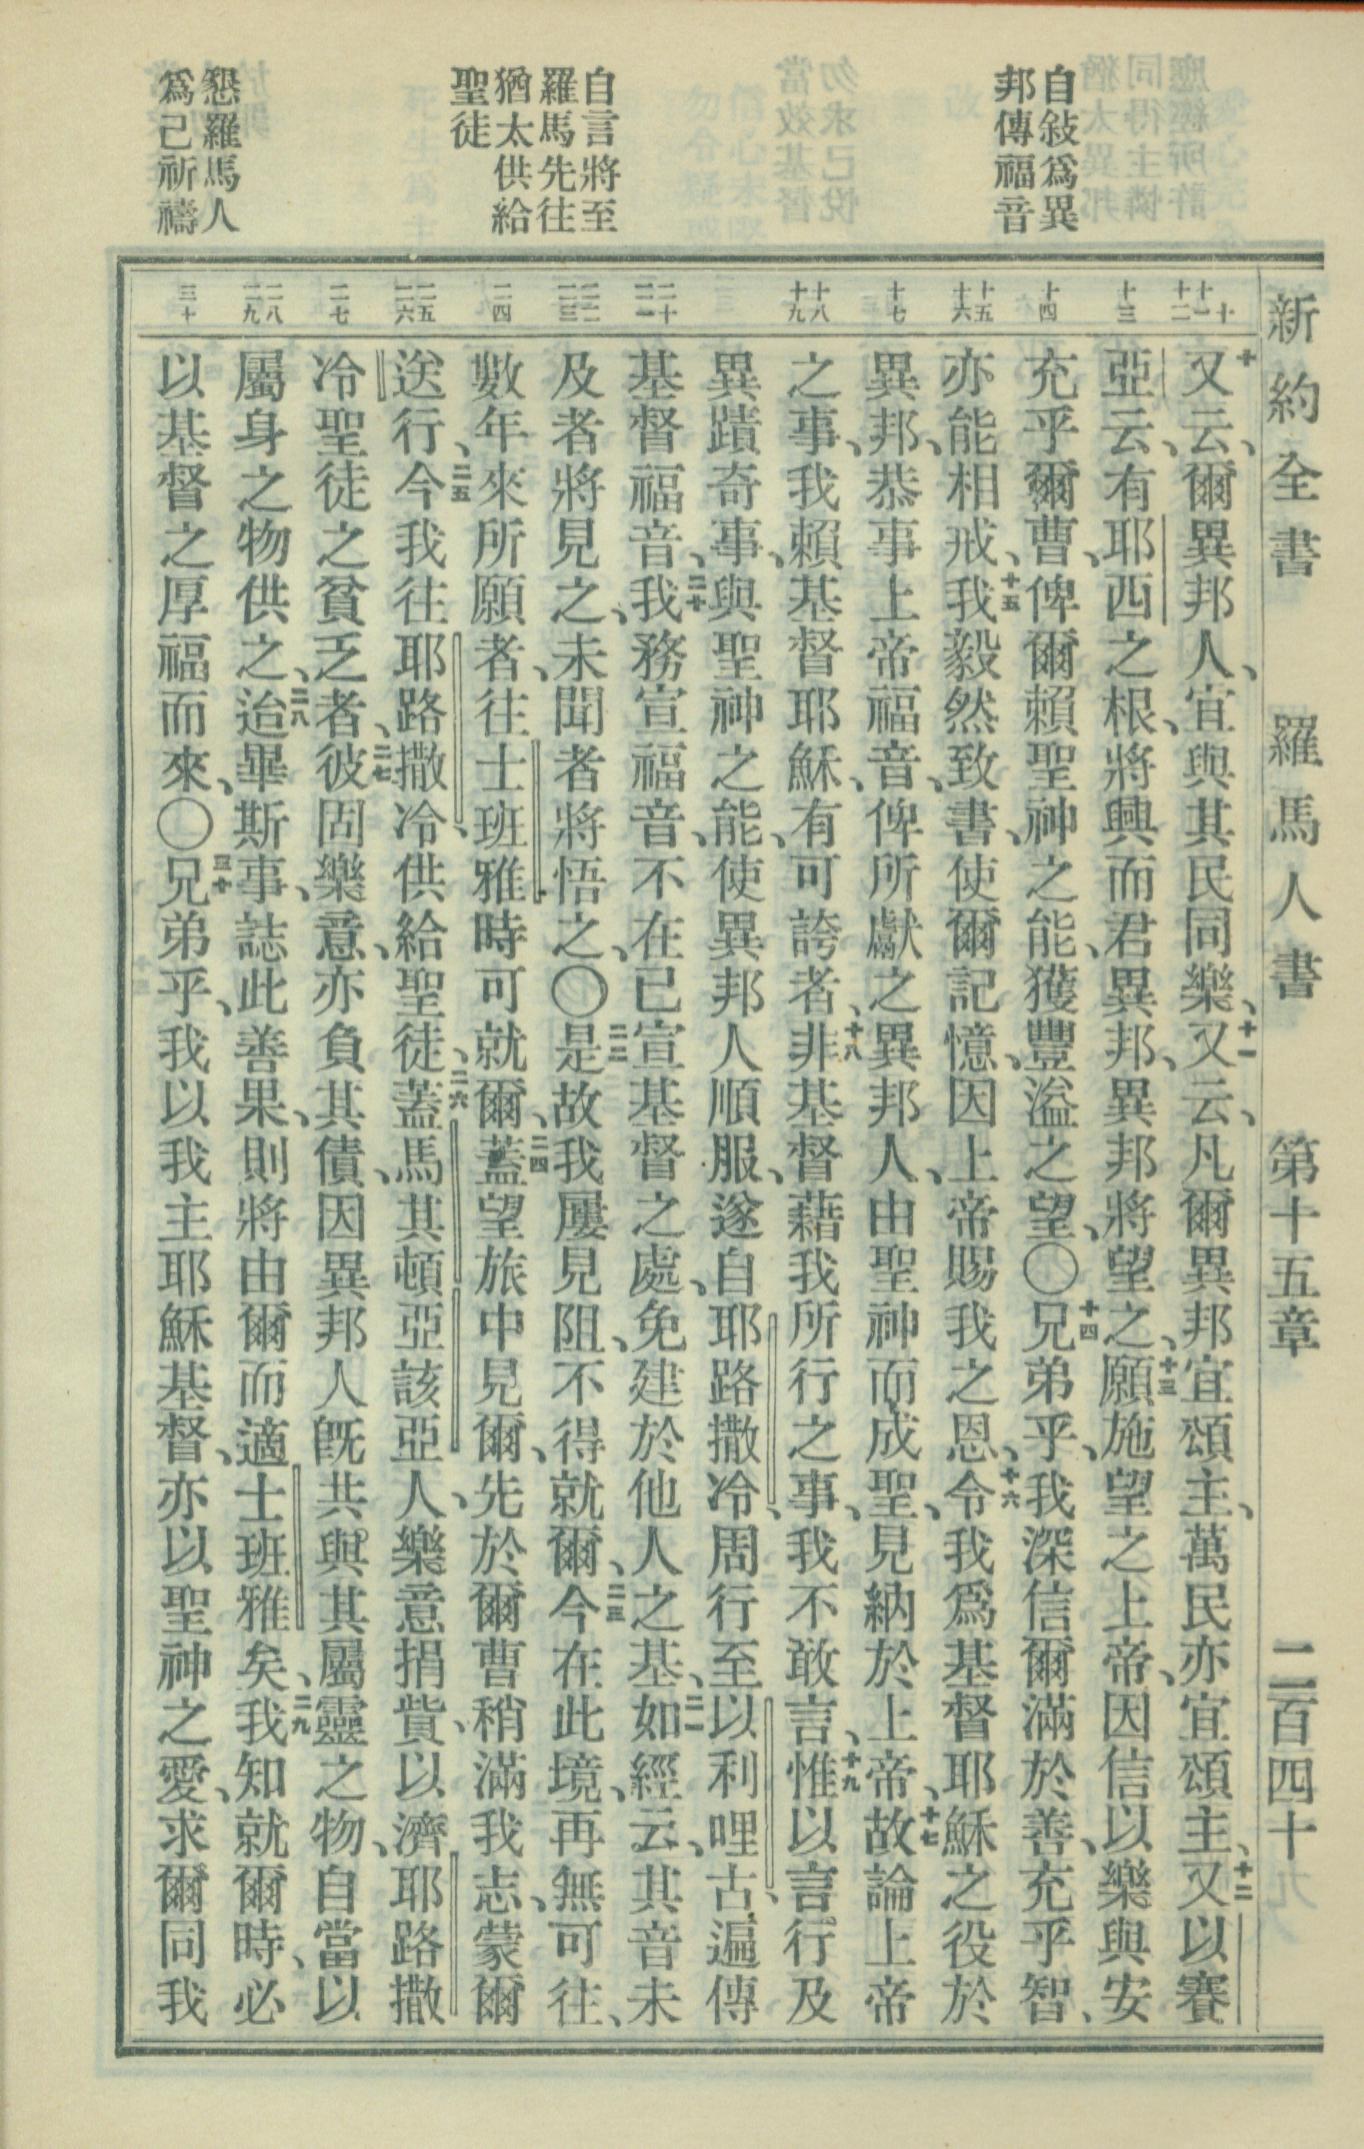 新約全書 羅馬人書 第十五章 二百四十
自敍爲異
邦傳福音
自言將至
羅馬先往
猶太供給
聖徒
懇羅馬人
爲己祈禱
十
十一
十二
十三
十四
十五
十六
十七
十八
十九
二十
二一
二二
二三
二四
二五
二六
二七
二八
二九
三十
十又云、爾異邦人、宜與其民同樂、十一又云、凡爾異邦宜頌主、萬民亦宜頌主、十二又以賽
亞云、有耶西之根、將興而君異邦、異邦將望之、十三願施望之上帝、因信以樂與安
充乎爾曹、俾爾賴聖神之能、獲豐溢之望、〇十四兄弟乎、我深信爾滿於善、充乎智、
亦能相戒、十五我毅然致書、使爾記憶、因上帝賜我之恩、十六令我爲基督耶穌之役於
異邦、恭事上帝福音、俾所獻之異邦人、由聖神而成聖、見納於上帝、十七故論上帝
之事、我賴基督耶穌、有可誇者、十八非基督藉我所行之事、我不敢言、十九惟以言行及
異蹟奇事、與聖神之能、使異邦人順服、遂自耶路撒冷、周行至以利哩古、遍傳
基督福音、二十我務宣福音、不在已宣基督之處、免建於他人之基、二一如經云、其音未
及者將見之、未聞者將悟之、〇二二是故我屢見阻、不得就爾、二三今在此境、再無可往、
數年來所願者、往士班雅時可就爾、二四蓋望旅中見爾、先於爾曹稍滿我志、蒙爾
送行、二五今我往耶路撒冷、供給聖徒、二六蓋馬其頓亞該亞人、樂意捐貲、以濟耶路撒
冷聖徒之貧乏者、二七彼固樂意、亦負其債、因異邦人旣共與其屬靈之物、自當以
屬身之物供之、二八迨畢斯事、誌此善果、則將由爾而適士班雅矣、二九我知就爾時、必
以基督之厚福而來、〇三十兄弟乎、我以我主耶穌基督、亦以聖神之愛、求爾同我